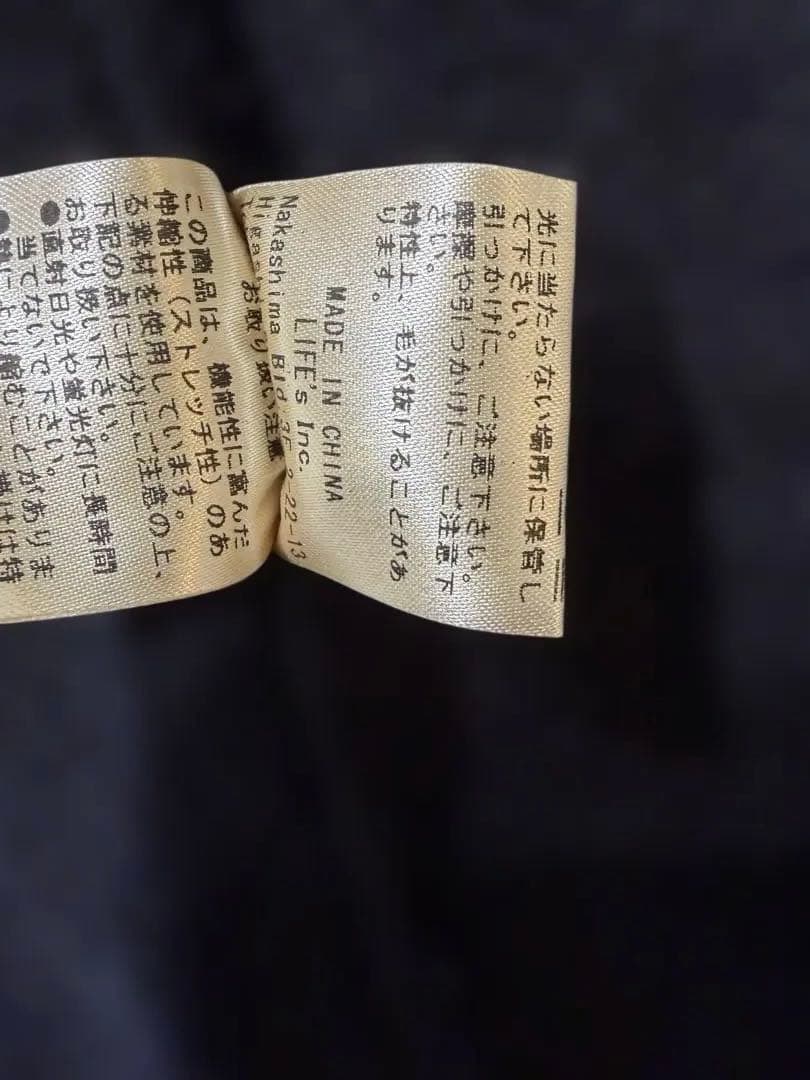 光に当たらない場所に保管し
て下さい。
引っかけに、ご注意下さい。
摩擦や引っかけに、ご注意下
さい。
特性上、毛が抜けることがあ
ります。
MADE IN CHINA
LIFE's Inc.
Nakashima Bld 3F 2-22-13
お取り扱い注意
この商品は、機能性に富んだ
伸縮性（ストレッチ性）のあ
る素材を使用しています。
下記の点に十分にご注意の上、
お取り扱い下さい。
●直射日光や蛍光灯に長時間
当てないで下さい。
●熱により縮むことがありま